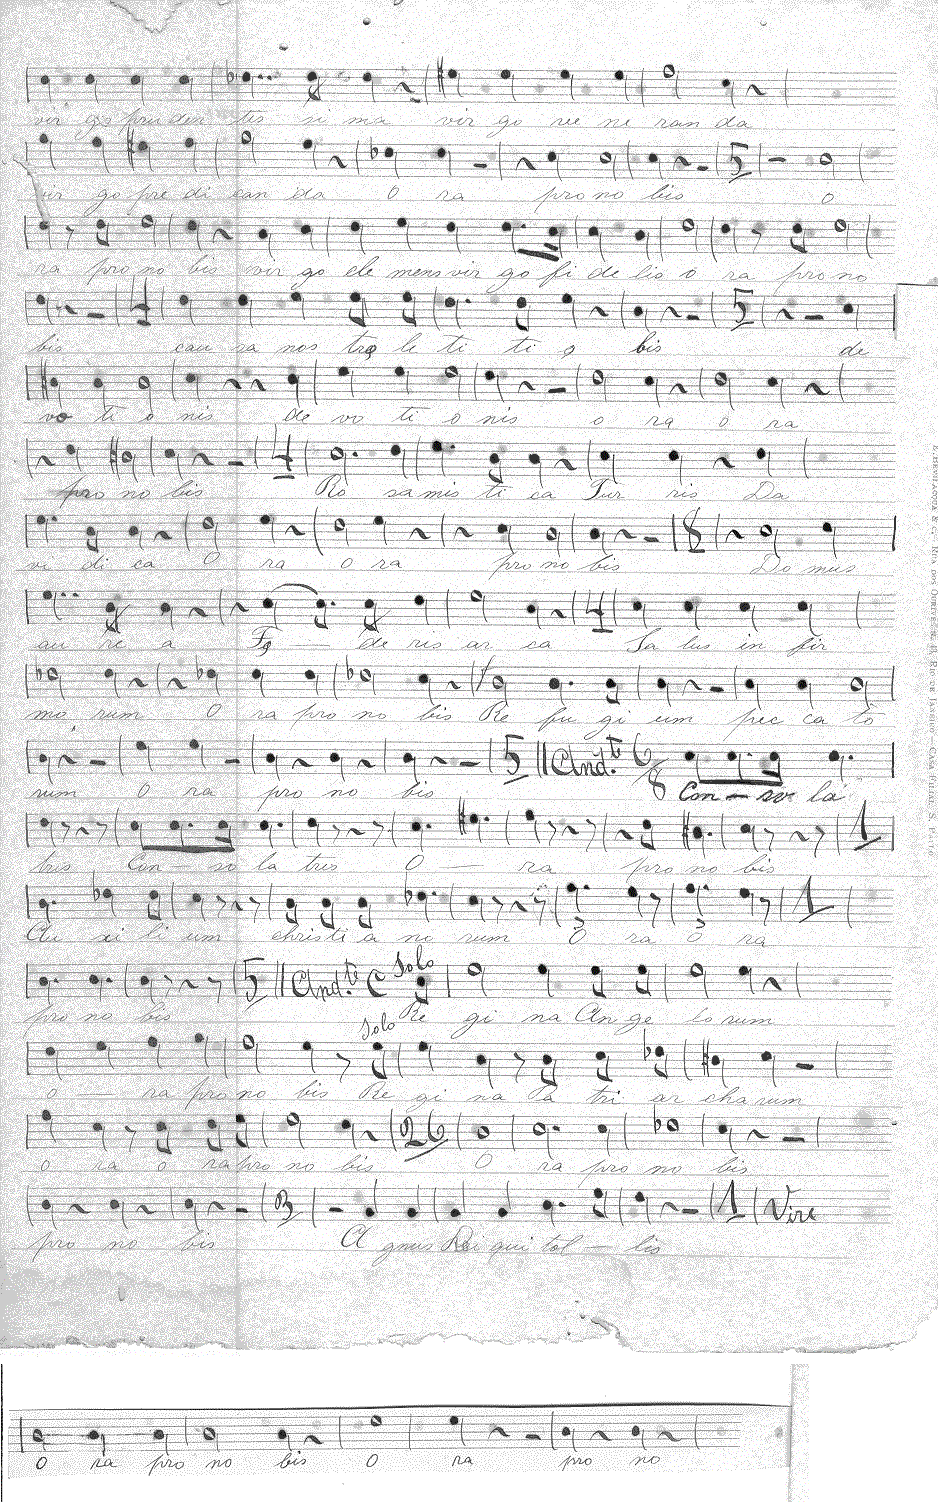 vir go pru den tis si ma vir go ve ne ran da
vir go pre di can da O ra pro no bis O
5
ra pro no bis vir go cle mens vir go fi de lis o ra pro no
4 5
bis cau sa nos tre le ti ti e bis de
vo ti o nis de vo ti o nis o ra o ra
4
pro no bis Ro sa mis ti ca Tur ris Da
8
vi di ca O ra o ra pro no bis Do mus
4
au re a Fe — de ris ar ca Sa lus in fir
mo rum O ra pro no bis Re fu gi um pec ca to
5 And.te 6/8
rum O ra pro no bis Con — so la
1
tris Con — so la tris O — ra pro no bis
1
Au xi li um christi a no rum O ra O ra
5 And.te C Solo
pro no bis Re gi na An ge lo rum
Solo
o — ra pro no bis Re gi na Pa tri ar cha rum
26
o ra o ra pro no bis O ra pro no bis
1 Vire
pro no bis A gnus Dei qui tol — lis
O ra pro no bis O ra pro no